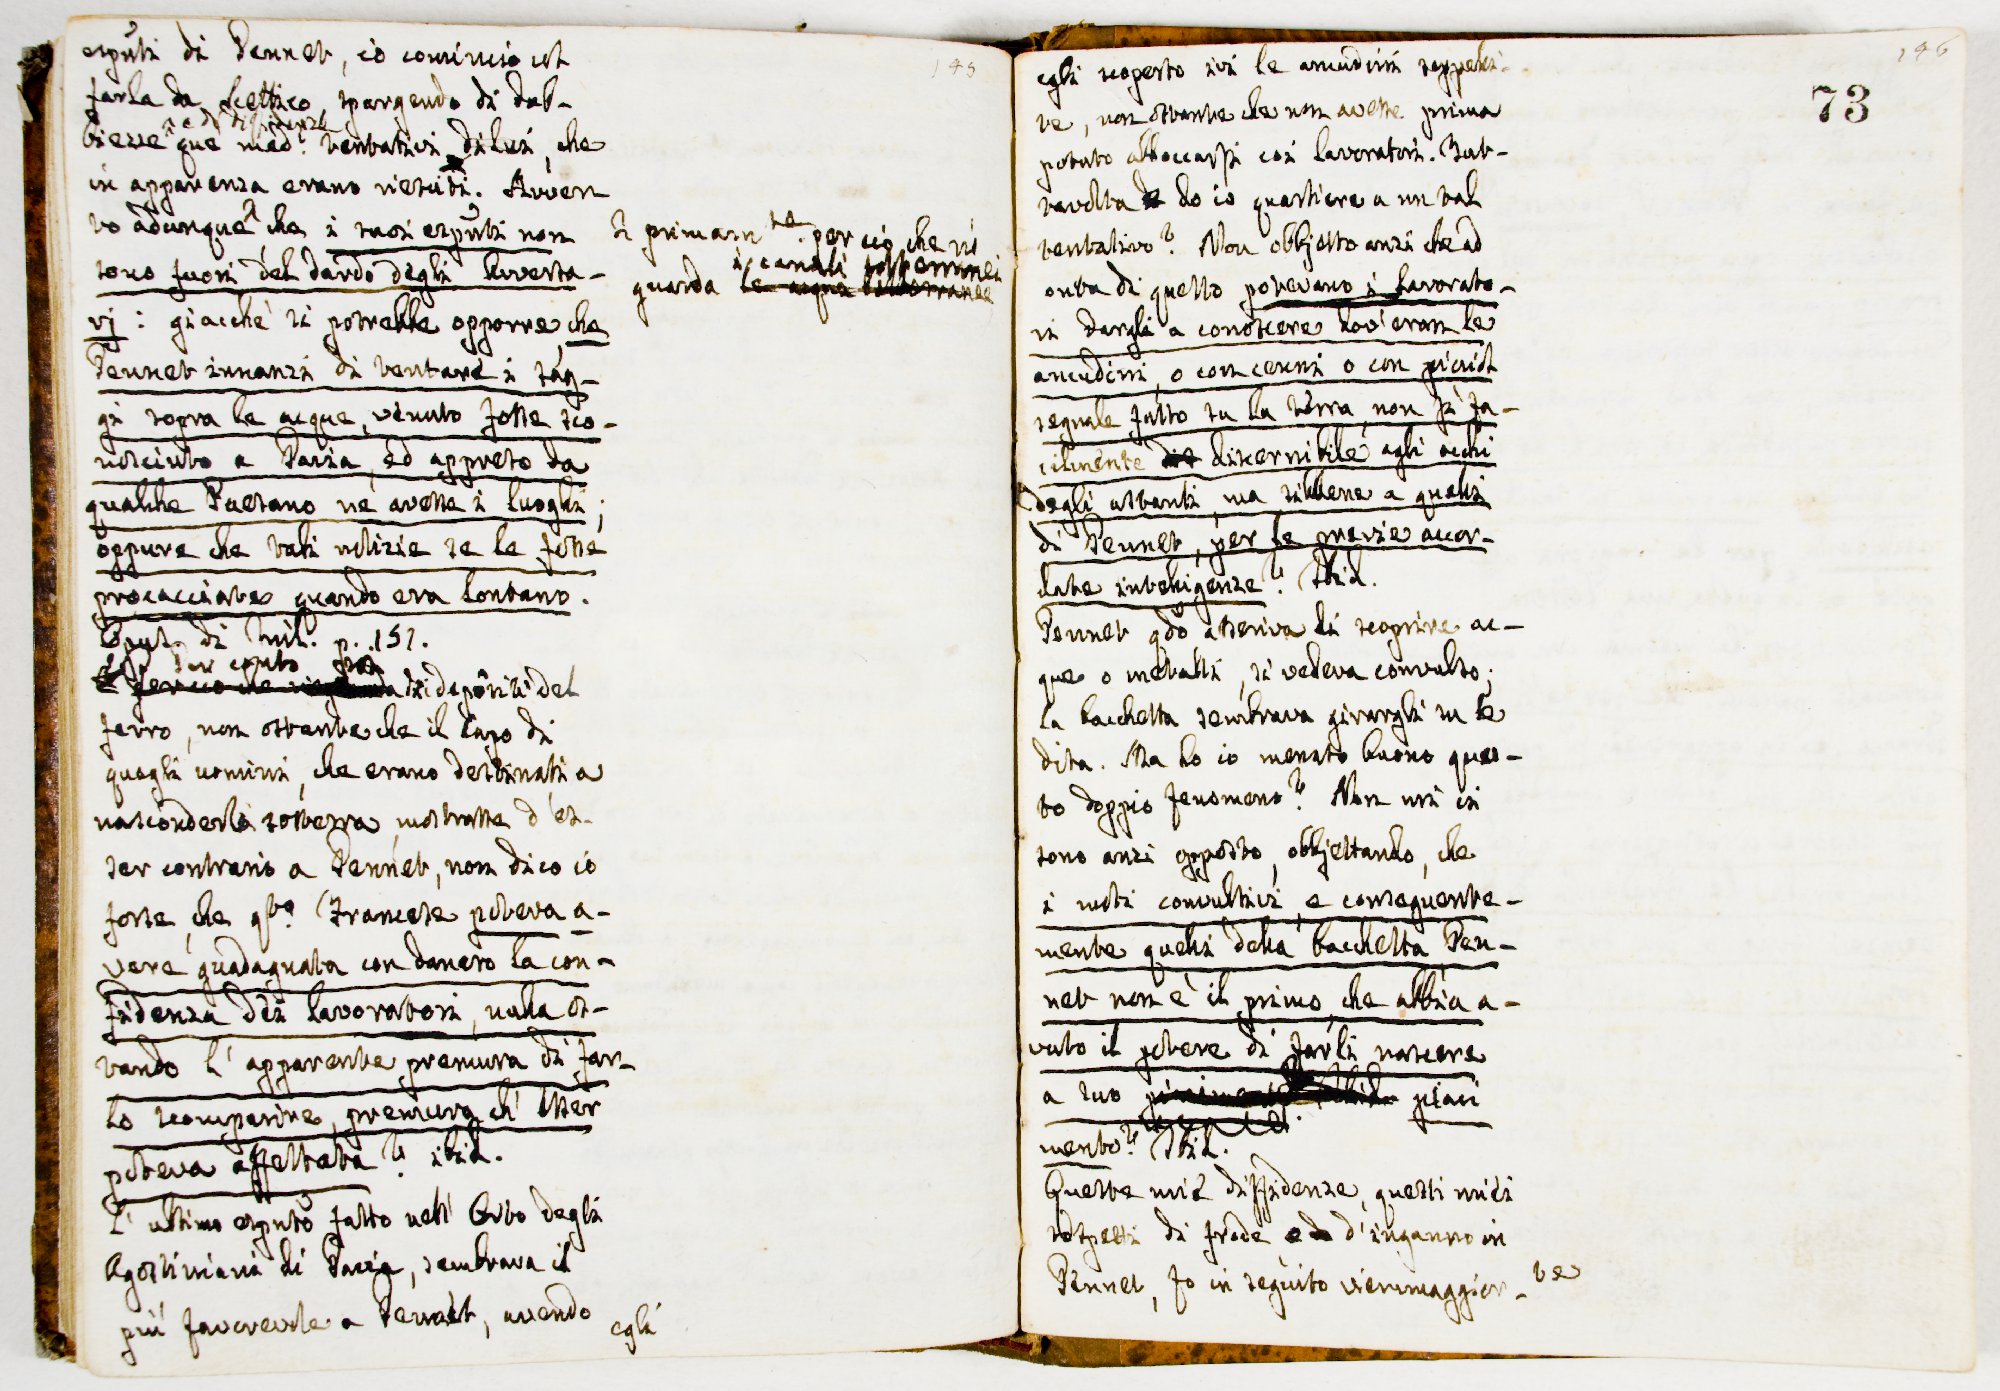 145
esputi di Pennet, io comincio col
farla da scettico, spargendo di dub-
biezze e di diffidenza que' med.i tentativi di lui, che
in apparenza erano riesciti. Avver
to adunque che i suoi esputi non
sono fuori del dardo degli Avversa-
rj: giacchè si potrebbe opporre, che
Pennet innanzi di tentare i sag-
gi sopra le acque, venuto fosse sco-
nosciuto a Pavia, ed appreso da
qualche Paesano ne avesse i luoghi;
oppure che tali notizie se le fosse
procacciate quando era lontano.
Opusc. di Mil. p. 151.
di depositi del
ferro, non ostante che il capo di
quegli uomini, che erano destinati a
nasconderlo sotterra mostrasse d'es-
ser contrario a Pennet, non dico io
forse, che q.to Francese poteva a-
vere guadagnata con danaro la con-
fidenza dei lavoratori, nulla os-
tando l'apparente premura di far-
lo scomparire, premura ch'esser
poteva affettata? ibid.
L'ultimo esputo fatto nell'Orto degli
Agostiniani di Pavia, sembrava il
più favorevole a Pennet, avendo
egli
Si primam.te per ciò che ri
guarda i canali sotterranei
le acque sotterranee
146
73
egli scoperto ivi le ancudini seppelli-
te, non ostante che non avesse prima
potuto abboccarsi coi lavoratori. Tut-
tavolta do io quartiere a un tal
tentativo? Non obbjetto anzi che ad
onta di quello potevano i lavorato-
ri dargli a conoscere dov'eran le
ancudini, o con cenni o con picciol
segnale fatto su la terra, non sì fa-
cilmente discernibile agli occhi
degli astanti, ma sibbene a quelli
di Pennet, per le previe accor-
date intelligenze? Ibid.
Pennet q.do asseriva di scoprire ac-
que o metalli, si vedeva convulso;
la bacchetta sembrava girargli su le
dita. Ma ho io menato buono ques-
to doppio fenomeno? Non mi ci
sono anzi opposto, obbjettando, che
i moti convulsivi, e conseguente-
mente quelli della bacchetta, Pen-
net non è il primo, che abbia a-
vuto il potere di farli nascere
a suo piaci
mento? Ibid.
Queste mie diffidenze, questi miei
sospetti di frode, e d'inganno in
Pennet, fo in seguito viemmaggior-
te